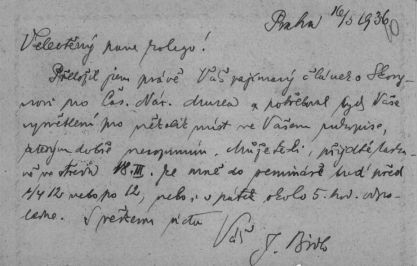 Praha 16/3 1936
Velectěný pane kolego!
Přeložil jem právě Váš zajímavý článek o Skory-
novi pro Čas. Nár. Musea a potřeboval bych Vaše
vysvětlení pro několik míst ve Vašem rukopise,
kterým dobře nerozumím. Můžete-li, přijďte laska-
vě ve středu 18.III. ke mně do semináře buď před
12 nebo po 12, nebo v pátek okolo 5. hod. odpo-
ledne. S veškerou úctou
Váš
J. Bidlo